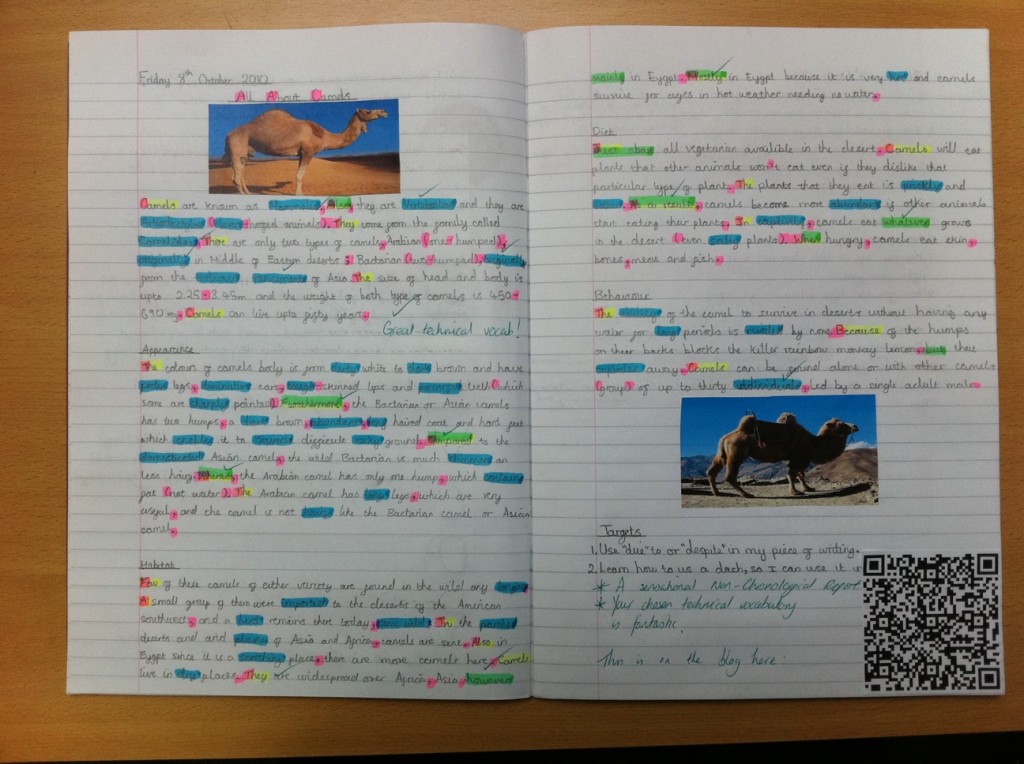 Friday 8th October 2010
All About Camels
Camels are known as Mammals, Also, they are Vertebrates and they are
hooved animals). They come from the family called
Camelidae. There are only two types of camels, Arabian (one humped),
originally in Middle of Eastern deserts; Bactarian (two humped), originally
from the of Asia. The size of head and body is
upto 2.25-3.45m and the weight of both type of camels is 450-
690 Camels can live upto fifty years.
Great technical vocab!
Appearance
The colour of camels body is from dusty white to dark brown and have
legs, ears, tough skinned lips and powerful teeth (which
some are sharply pointed). Furthermore, the Bactarian or Asian camels
has two humps, a dark brown, long haired coat and hard feet
which enables it to difficule rocky ground. Compared to the
domesticated Asian camel, the wild Bactarian is much an
less hairy. Whereas, the Arabian camel has only one hump, which contains
fat (not water). The Arabian camel has long legs, which are very
useful, and the camel is not like the Bactarian camel or Asian
camel.
Habitat
Few of these camels of either variety are found in the wild any longer.
A small group of them were imported to the deserts of the American
southwest, and a herd remains there today, The parched
deserts and arid plains of Asia and Africa, camels are sent. Also, in
Egypt since it is a scorching place, there are more camels here. Camels
live in dry places. They are widespread over Africa, Asia, however
mainly in Eygpt. Mostly in Eygpt because it is very hot and camels
survive for ages in hot weather needing no water.
Diet
all vegetarian availible in the desert. Camels will eat
plants that other animals won't eat even if they dislike that
particular type of plant. The plants that they eat is prickly and
As a result, camels become more if other animals
start eating their plants. In captivity, camels eat whatever grows
in the desert (even plants). When hungry, camels eat skin,
bones, meat and fish.
Behaviour
The of the camel to survive in deserts without having any
water for long periods is by none. Because of the humps
on their backs blocks the killer rainbow monkey lemon, but they
away. Camels can be found alone or with other camels
(group) of up to thirty individuals, led by a single adult male.
Targets
1. Use "due" to or "despite" in my piece of writing.
2. Learn how to us a dash, so I can use it in
* A sensational Non-Chronological Report
* Your chosen technical vocabulary
is fantastic.
This is on the blog here: